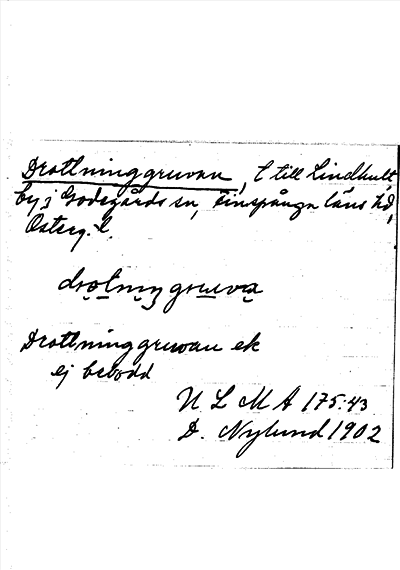 Drottninggruvan, l till Lindhult
by i Godegårds sn, Finspånga läns hd,
Österg. l.
drotniŋgruva
Drottninggruvan ek
ej bebodd
ULMA 175:43
D. Nylund 1902